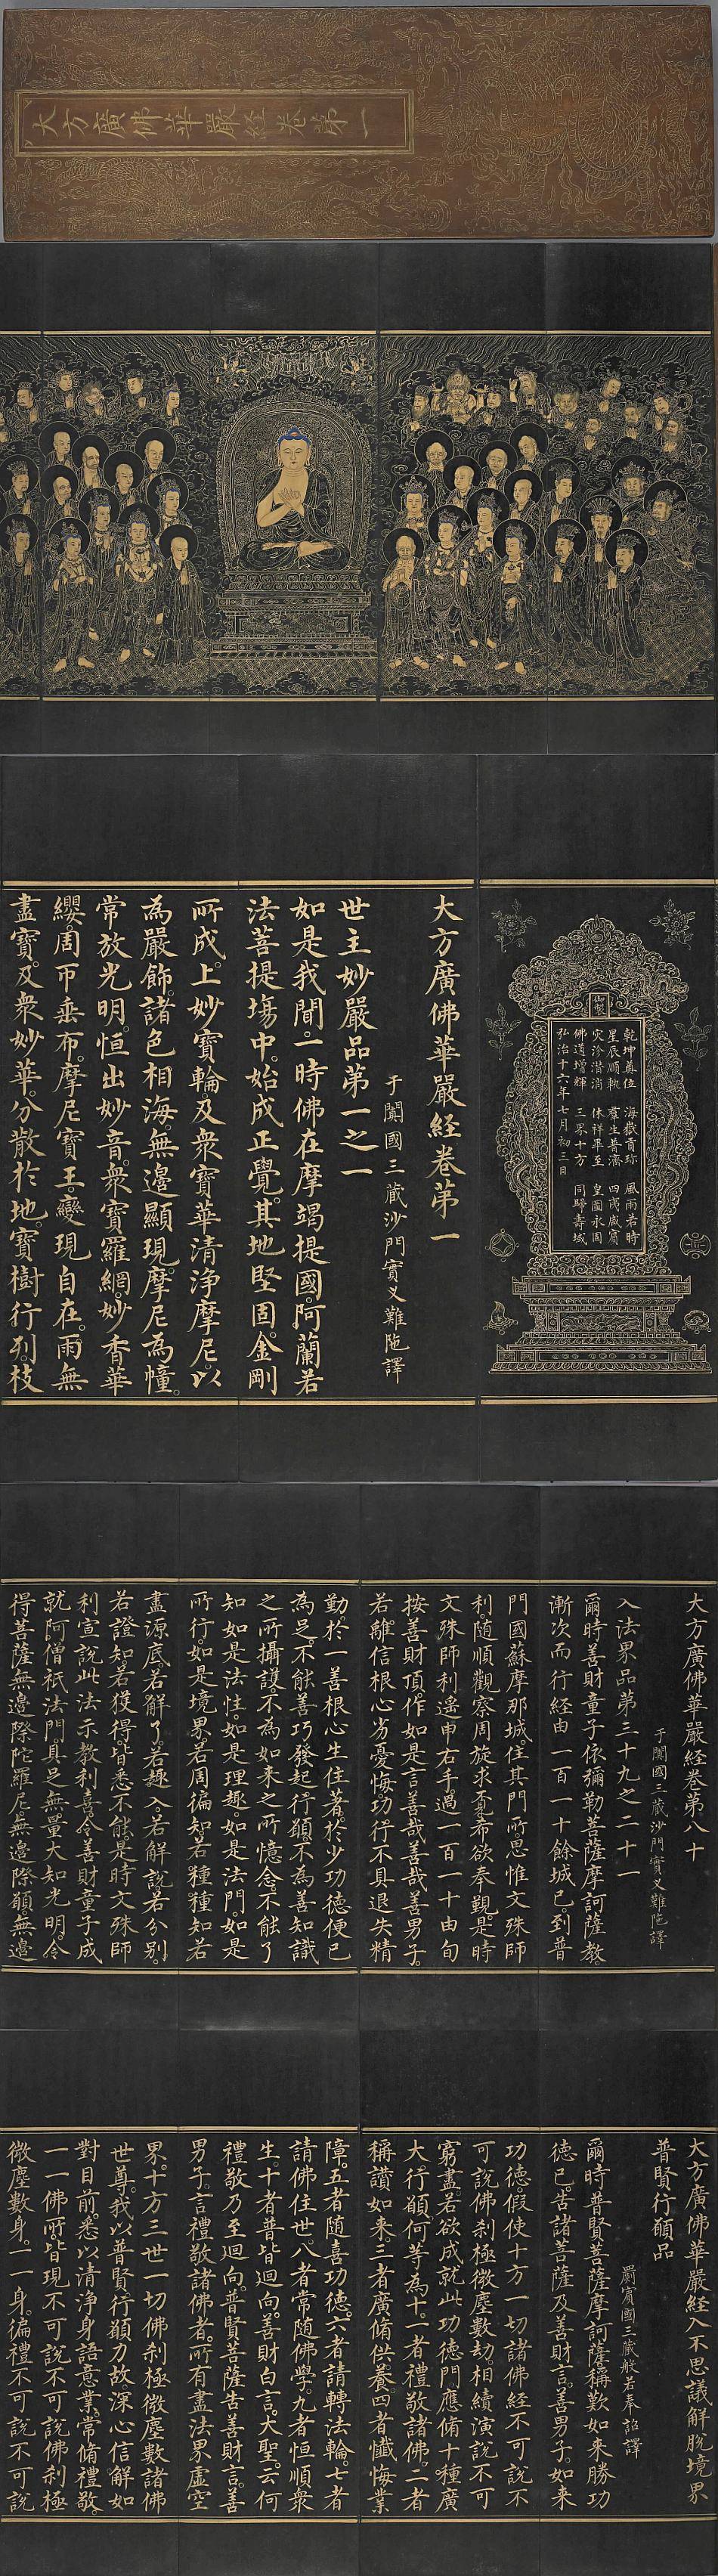 大方廣佛華嚴經卷第一
乾坤奠位　海嶽貢珍　風雨若時
星辰順軌　羣生普濟　四夷咸賓
災沴潛消　休祥畢至　皇圖永固
佛道增輝　三界十方　同歸壽域
弘治十六年七月初三日
大方廣佛華嚴經卷第一
于闐國三藏沙門實叉難陁譯
世主妙嚴品第一之一
如是我聞。一時佛在摩竭提國。阿蘭若
法菩提場中。始成正覺。其地堅固。金剛
所成。上妙寶輪。及衆寶華清淨摩尼。以
為嚴飾。諸色相海。無邊顯現。摩尼為幢。
常放光明。恒出妙音。衆寶羅網。妙香華
纓。周帀垂布。摩尼寶王。變現自在。雨無
盡寶。及衆妙華。分散於地。寶樹行列。枝
大方廣佛華嚴經卷第八十
于闐國三藏沙門實叉難陁譯
入法界品第三十九之二十一
爾時善財童子。依彌勒菩薩摩訶薩教。
漸次而行。經由一百一十餘城已。到普
門國蘇摩那城。住其門所。思惟文殊師
利。隨順觀察。周旋求覓。希欲奉覲。是時
文殊師利。遙申右手。過一百一十由旬
按善財頂。作如是言。善哉善哉。善男子。
若離信根。心劣憂悔。功行不具。退失精
勤。於一善根。心生住著。於少功德。便已
為足。不能善巧發起行願。不為善知識
之所攝護。不為如來之所憶念。不能了
知如是法性。如是理趣。如是法門。如是
所行。如是境界。若周徧知。若種種知。若
盡源底。若解了。若趣入。若解說。若分別
若證知。若獲得。皆悉不能。是時文殊師
利。宣說此法。示教利喜。令善財童子。成
就阿僧祇法門。具足無量大知光明。令
得菩薩無邊際陀羅尼。無邊際願。無邊
大方廣佛華嚴經入不思議解脫境界
普賢行願品
罽賓國三藏般若奉詔譯
爾時普賢菩薩摩訶薩。稱歎如來勝功
德已。告諸菩薩及善財言。善男子。如來
功德。假使十方一切諸佛。經不可說不
可說佛剎極微塵數劫。相續演說。不可
窮盡。若欲成就此功德門。應脩十種廣
大行願。何等為十。一者禮敬諸佛。二者
稱讚如來。三者廣脩供養。四者懺悔業
障。五者随喜功德。六者請轉法輪。七者
請佛住世。八者常随佛學。九者恒順衆
生。十者普皆迴向。善財白言。大聖。云何
禮敬乃至迴向。普賢菩薩告善財言。善
男子。言禮敬諸佛者。所有盡法界虛空
界。十方三世一切佛剎極微塵數諸佛
世尊。我以普賢行願力故。深心信解。如
對目前。悉以清淨身語意業。常脩禮敬。
一一佛所。皆現不可說不可說佛剎極
微塵數身。一一身。徧禮不可說不可說